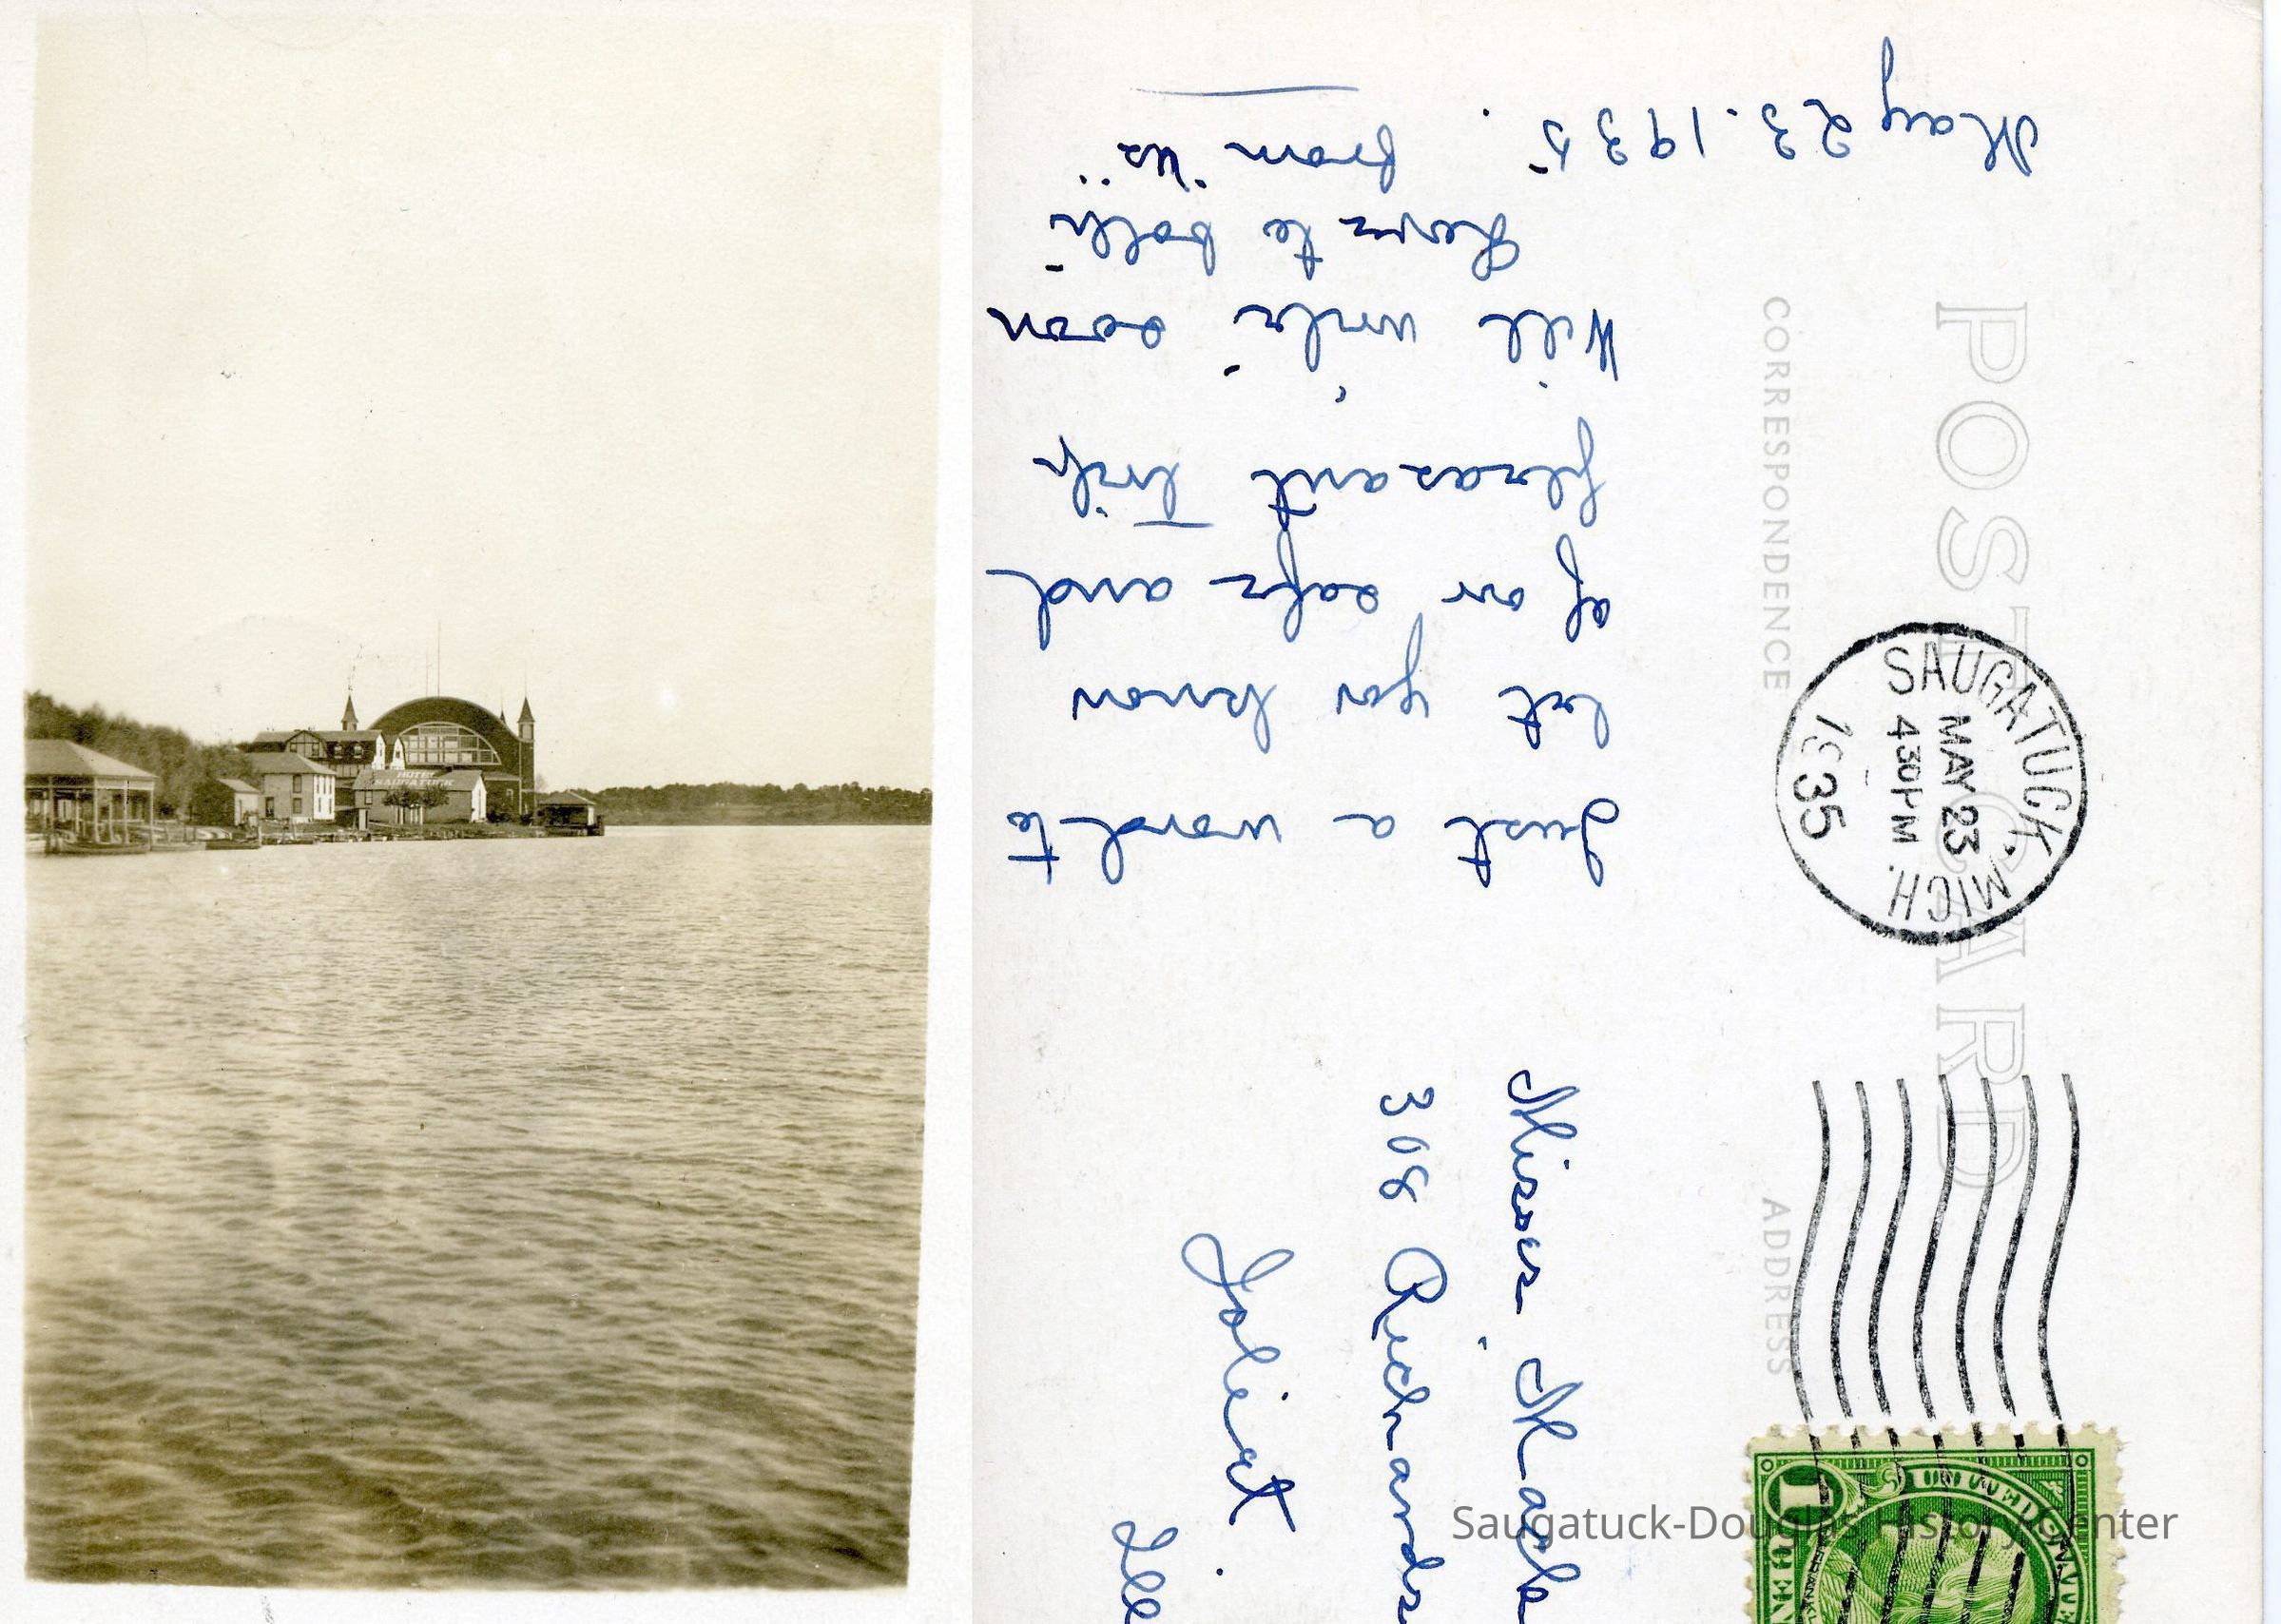 HOTEL
SAUGATUCK
POST CARD
CORRESPONDENCE
ADDRESS
SAUGATUCK, MICH.
MAY 23
430 PM
1935
May 23. 1935.
Just a word to
let you know
of our safe and
pleasant trip
Will write soon
Love to both
from "us"
Misses Mack
308 Richards
Joliet
Ill
1
Saugatuck-Douglas History Center